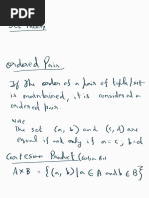 Set Theory
ordered Pair
If the order of a pair of
is maintained, it is considered a
ordered pair.
Note
The set (a, b) and (c, d) are
equal if not only if a = c, b = d
Cartesian Product
A×B = {(a, b) | a ∈ A and b ∈ B}